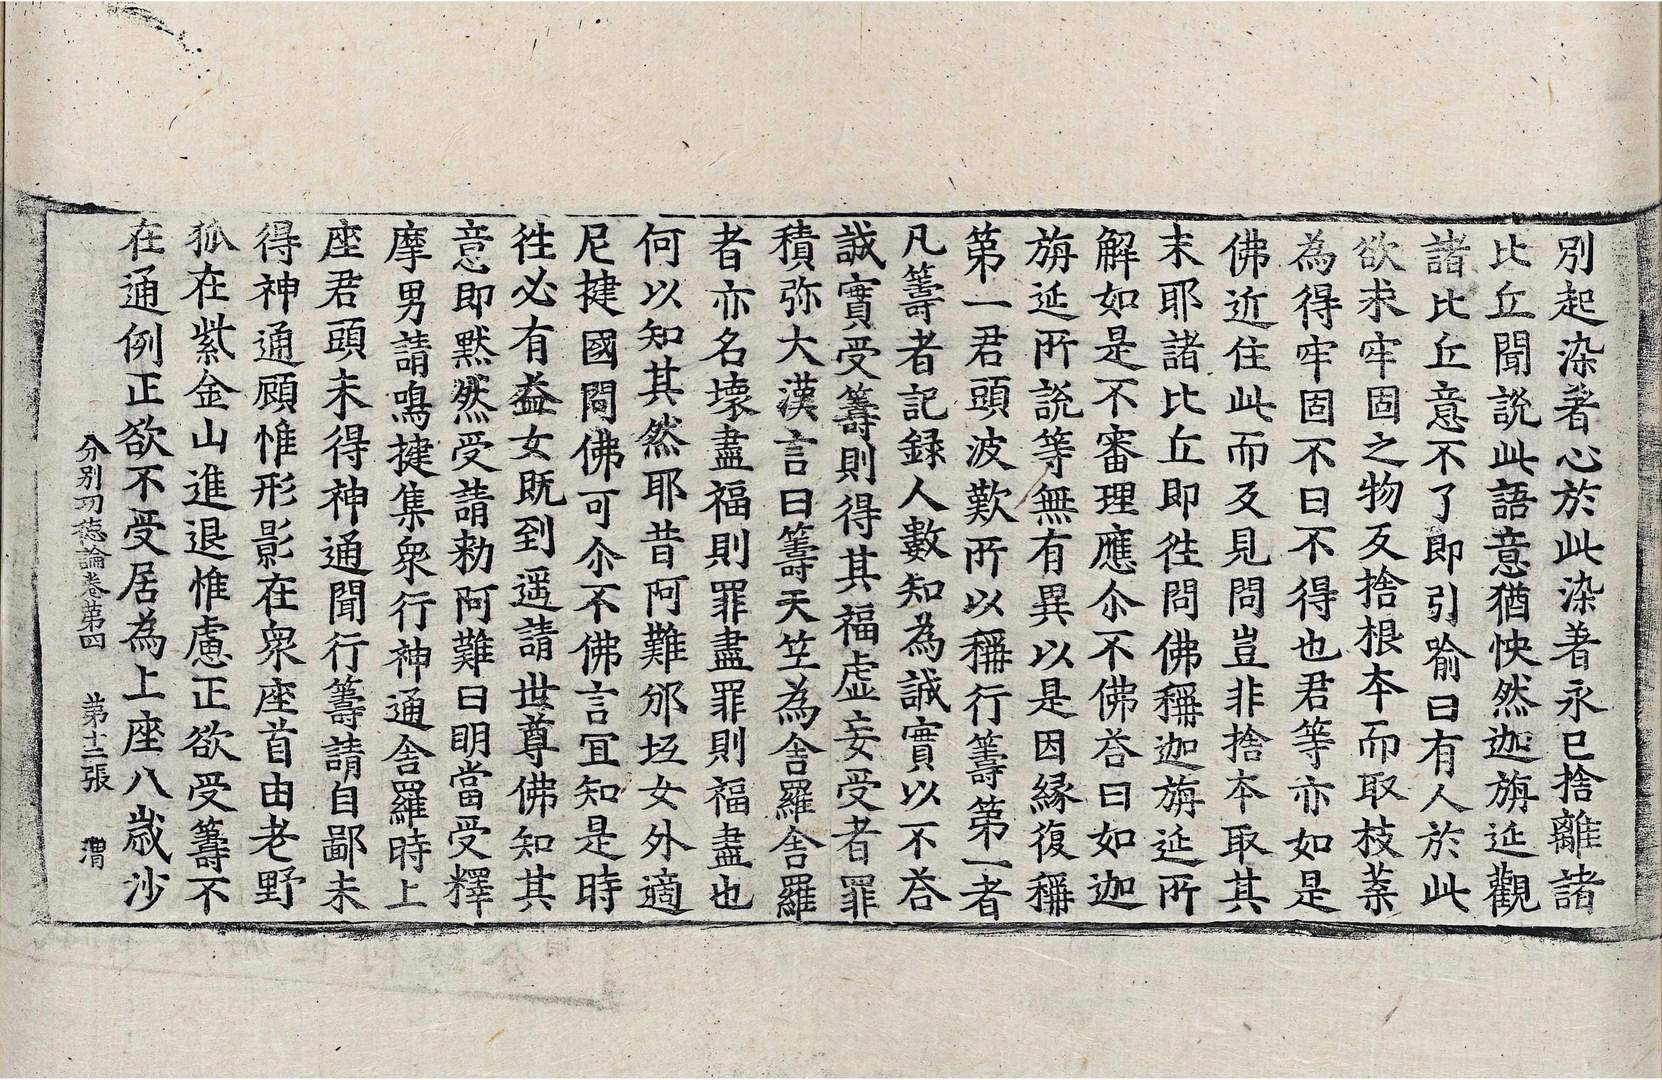 別起染著心於此染著永已捨離諸
比丘聞說此語意猶怏然迦旃延觀
諸比丘意不了即引喻曰有人於此
欲求牢固之物反捨根本而取枝葉
為得牢固不曰不得也君等亦如是
佛近住此而反見問豈非捨本取其
末耶諸比丘即往問佛稱迦旃延所
解如是不審理應尒不佛荅曰如迦
旃延所說等無有異以是因緣復稱
第一君頭波歎所以稱行籌第一者
凡籌者記錄人數知為誠實以不荅
誠實受籌則得其福虛妄受者罪
積弥大漢言曰籌天竺為舍羅舍羅
者亦名壞盡福則罪盡罪則福盡也
何以知其然耶昔阿難邠坻女外適
尼揵國問佛可尒不佛言宜知是時
往必有益女既到遥請世尊佛知其
意即默然受請勑阿難曰明當受釋
摩男請鳴揵集衆行神通舍羅時上
座君頭未得神通聞行籌請自鄙未
得神通顧惟形影在衆座首由老野
狐在紫金山進退惟慮正欲受籌不
在通例正欲不受居為上座八歲沙
分別功德論卷第四 第十二張 渭